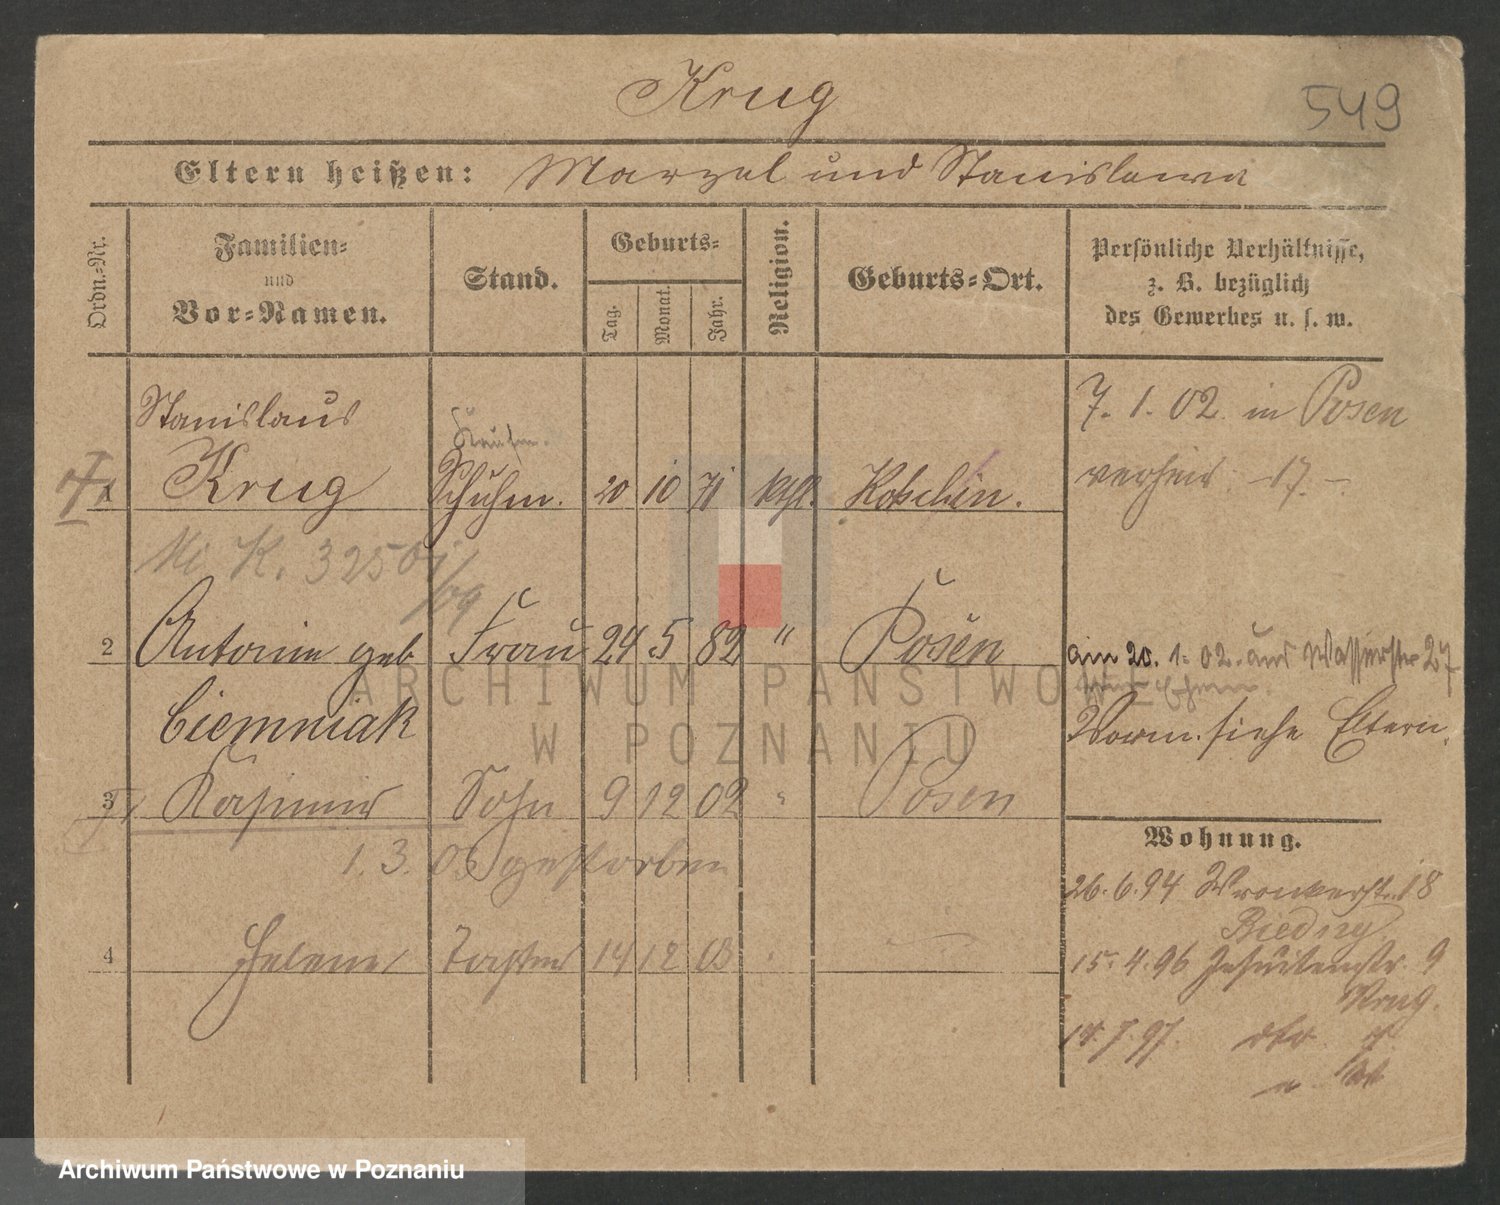 Krug
549
Eltern heißen: Marzel und Stanislawa
Ordn.-Nr.
Familien- und Vor-Namen.
Stand.
Geburts-
Tag.
Monat.
Jahr.
Religion.
Geburts-Ort.
Persönliche Verhältnisse,
z. B. bezüglich
des Gewerbes u. s. w.
Stanislaus
Krug Schuhm. 20 10 71 kath. Koschmin.
7. 1. 02. in Posen
verheir. 17.
K. 3250
/09
2 Antonie geb Frau 24 5 82 " Posen
Ciemniak
am 20. 1. 02. aus Wasserstr 27
Vorm. siehe Eltern.
3 Kasimir Sohn 9 12 02 " Posen
1. 3. 03 gestorben
4 Helene Tochter 14 12 03
Wohnung.
26. 6. 94 Wronkerstr. 18
15. 4. 96 Jesuitenstr. 9
Krug.
14. 7. 97.
ARCHIWUM PAŃSTWOWE
W POZNANIU
Archiwum Państwowe w Poznaniu